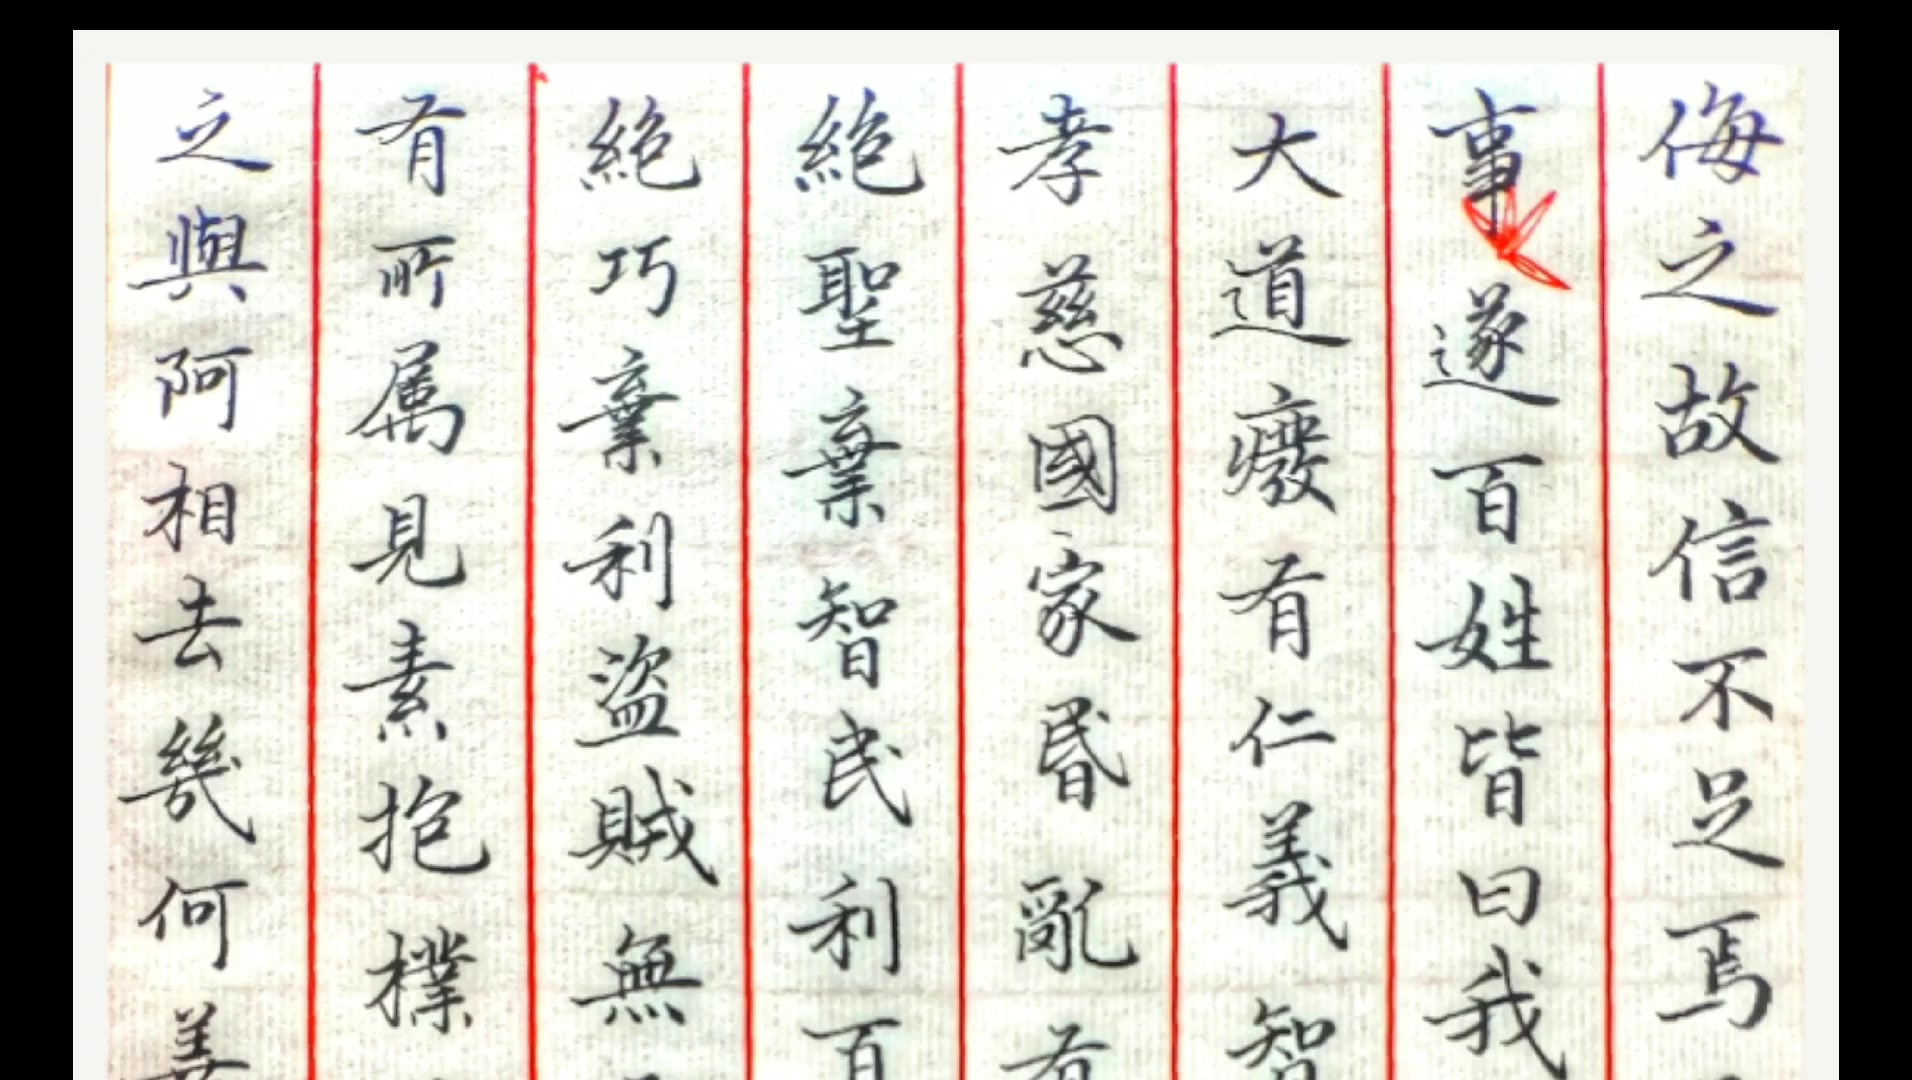 侮之故信不足焉
事遂百姓皆曰我
大道癈有仁義智
孝慈國家昬亂有
絶聖棄智民利百
絶巧棄利盜賊無
有所属見素抱樸
之與阿相去幾何美